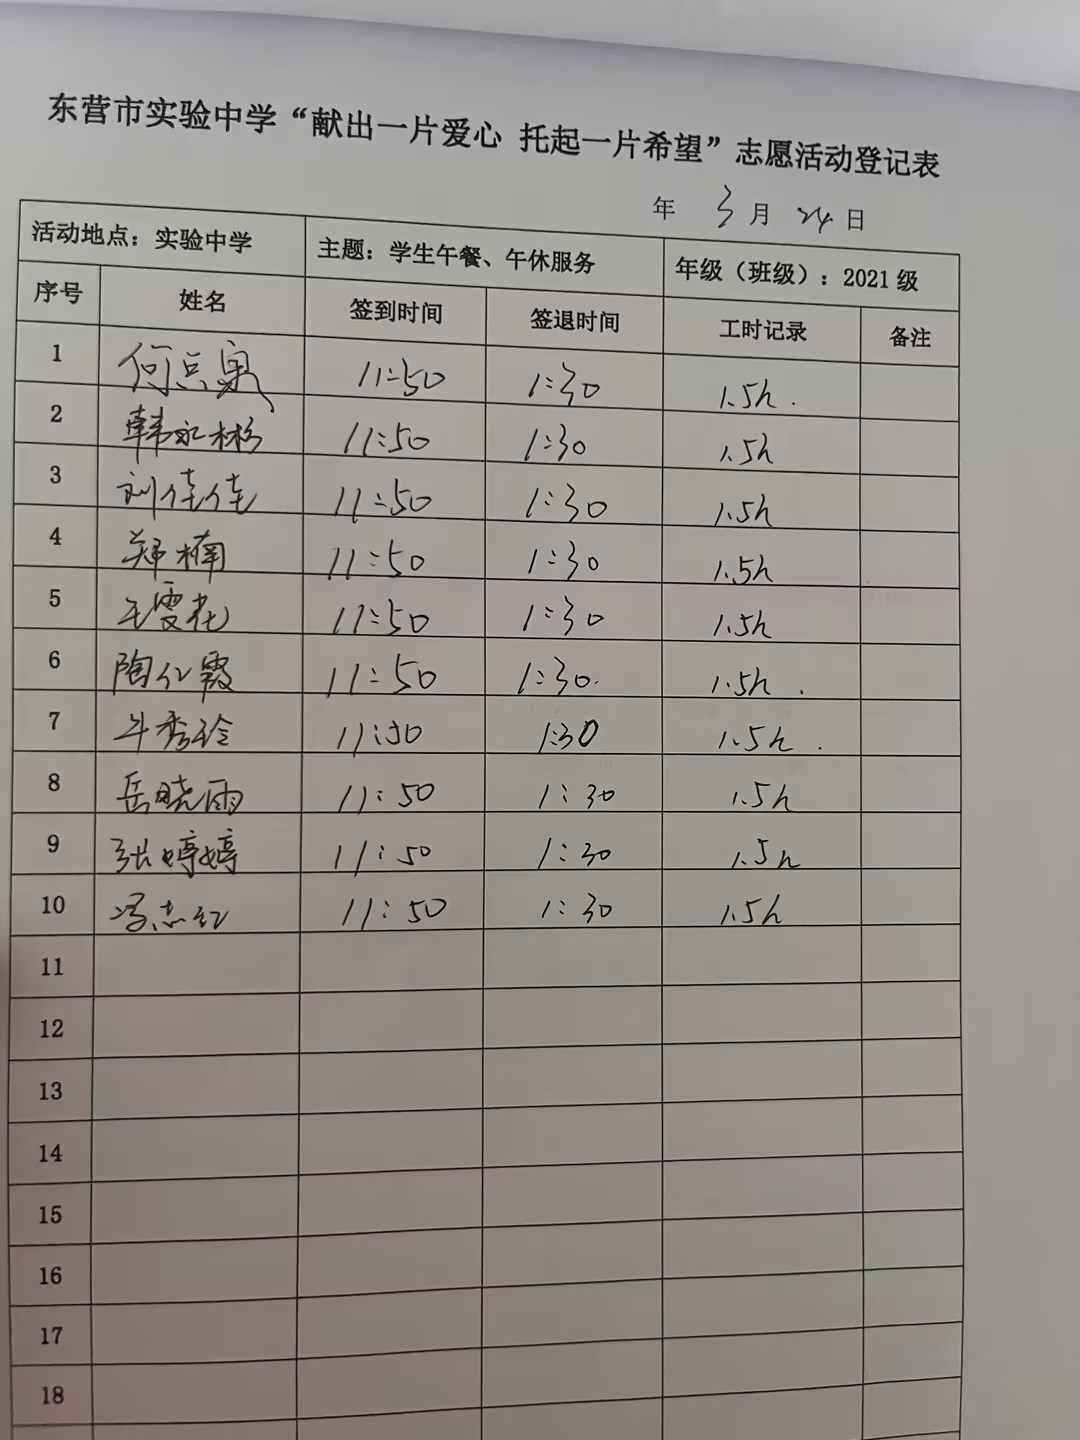 东营市实验中学“献出一片爱心 托起一片希望”志愿活动登记表
年 3月 24日
活动地点：实验中学 主题：学生午餐、午休服务 年级（班级）：2021级
序号 姓名 签到时间 签退时间 工时记录 备注
1 何 11:50 1:30 1.5h.
2 韩永彬 11:50 1:30 1.5h
3 刘佳佳 11:50 1:30 1.5h
4 郑楠 11:50 1:30 1.5h
5 王雯花 11:50 1:30 1.5h
6 陶仁霞 11:50 1:30. 1.5h.
7 牛秀玲 11:50 1:30 1.5h.
8 岳晓雨 11:50 1:30 1.5h
9 张婷婷 11:50 1:30 1.5h
10 冯志红 11:50 1:30 1.5h
11
12
13
14
15
16
17
18